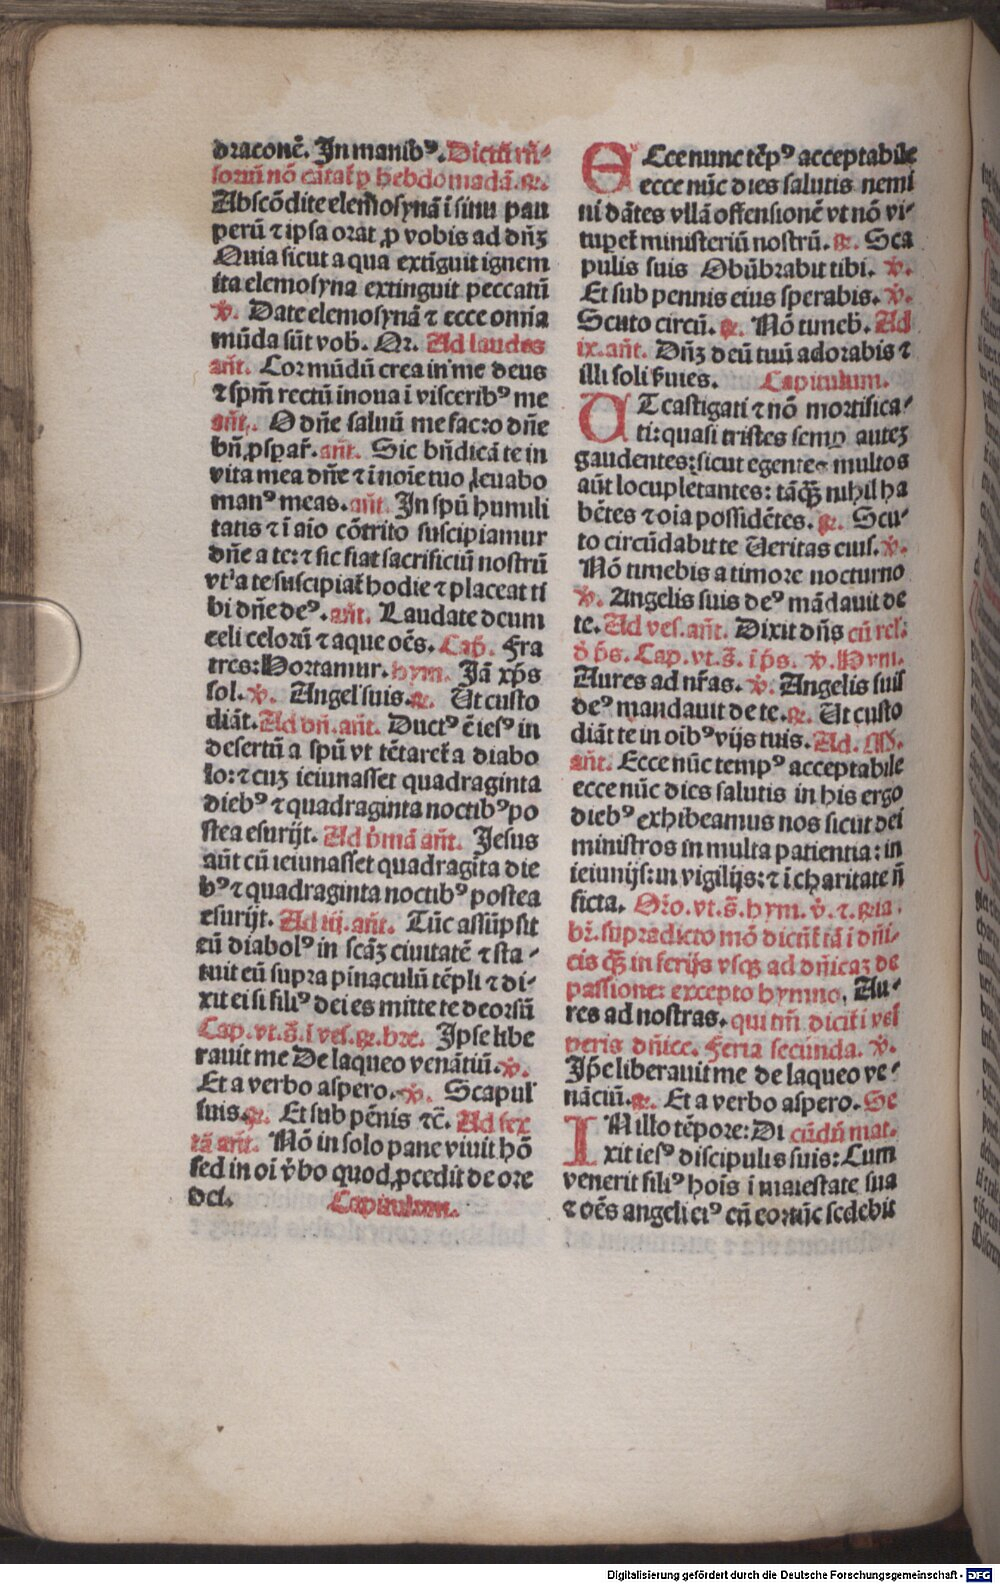 draconē. In manibꝰ. Dictū rñ-
soriū nō cātat̄ ꝑ hebdomadā. ꝶ.
Abscōdite elemosynā ī sinu pau
perū ⁊ ipsa orat ꝓ vobis ad dn̄ꝫ
Quia sicut aqua extīguit ignem
ita elemosyna extinguit peccatū
℣. Date elemosynā ⁊ ecce omīa
mūda sūt vob̄. Or. Ad laudes
an̄t. Cor mūdū crea in me deus
⁊ spm̄ rectū inoua ī visceribꝰ me
an̄t. O dn̄e saluū me fac:o dn̄e
bn̄ ꝓsꝑar̄. an̄t. Sic bn̄dicā te in
vita mea dn̄e ⁊ ī noīe tuo leuabo
manꝰ meas. an̄t. In spū humili
tatis ⁊ ī aīo cōtrito suscipiamur
dn̄e a te: ⁊ sic fiat sacrificiū nostrū
vt a te suscipiat̄ hodie ⁊ placeat ti
bi dn̄e deꝰ. an̄t. Laudate deum
celi celorū ⁊ aque oēs. Cap̄. Fra
tres: Hortamur. hym. Iā xp̄s
sol. ℣. Angel̄ suis. ꝶ. Ut custo
diāt. Ad bn̄. an̄t. Ductꝰ ē iesꝰ in
desertū a spū vt tētaret̄ a diabo
lo: ⁊ cuꝫ ieiunasset quadraginta
diebꝰ ⁊ quadraginta noctibꝰ po
stea esurijt. Ad p̄mā an̄t. Jesus
aūt cū ieiunasset quadragīta die
bꝰ ⁊ quadraginta noctibꝰ postea
esurijt. Ad iij. an̄t. Tūc assūpsit
eū diabolꝰ in scāꝫ ciuitatē ⁊ sta-
tuit eū supra pinaculū tēpli ⁊ di-
xit ei si filiꝰ dei es mitte te deorsū
Cap. vt. s̄. ī ves. ꝶ. bre. Ipse libe
rauit me De laqueo venātiū. ℣.
Et a verbo aspero. ℣. Scapul̄
suis. ꝶ. Et sub pēnis ⁊c̄. Ad sex
tā an̄t. Nō in solo pane viuit hō
sed in oī v̄bo quod ꝓcedit de ore
dei. Capitulum.
Ecce nunc tēpꝰ acceptabile
ecce nūc dies salutis nemi
ni dātes vllā offensionē vt nō vi-
tuperet̄ ministeriū nostrū. ꝶ. Sca
pulis suis Obūbrabit tibi. ℣.
Et sub pennis eius sperabis. ℣.
Scuto circū. ꝶ. Nō timeb̄. Ad
ix. an̄t. Dn̄ꝫ deū tuū adorabis ⁊
illi soli s̄uies. Capitulum.
UT castigati ⁊ nō mortifica-
ti: quasi tristes semꝑ auteꝫ
gaudentes: sicut egentes multos
aūt locupletantes: tāq̄ꝫ nihil ha
bētes ⁊ oīa possidētes. ꝶ. Scu-
to circūdabit te Veritas eius. ℣.
Nō timebis a timore nocturno
℣. Angelis suis deꝰ mādauit de
te. Ad ves. an̄t. Dixit dn̄s cū rel.
d̄ p̄s. Cap. vt. s̄. ī p̄s. ℣. Hym.
Aures ad nr̄as. ℣. Angelis suis
deꝰ mandauit de te. ꝶ. Ut custo
diāt te in oībꝰ vijs tuis. Ad. M.
an̄t. Ecce nūc tempꝰ acceptabile
ecce nūc dies salutis in his ergo
diebꝰ exhibeamus nos sicut dei
ministros in multa patientia: in
ieiunijs: in vigilijs: ⁊ ī charitate n̄
ficta. Oro. vt. s̄. hym. v̄. ⁊. ꝶia.
br̄. supradicto mō dicūt̄ tā ī dn̄i-
cis q̄ꝫ in ferijs vsqꝫ ad dn̄icaꝫ de
passione: excepto hymno. Au-
res ad nostras. qui tm̄ dicit̄ ī ves
peris dn̄ice. Feria secunda. ℣.
Ip̄e liberauit me de laqueo ve-
nāciū. ꝶ. Et a verbo aspero. Se
IN illo tēpore: Di cūdū mat.
xit iesꝰ discipulis suis: Cum
venerit filiꝰ hoīs ī maiestate sua
⁊ oēs angeli eiꝰ cū eo: tūc sedebit
Digitalisierung gefördert durch die Deutsche Forschungsgemeinschaft - DFG